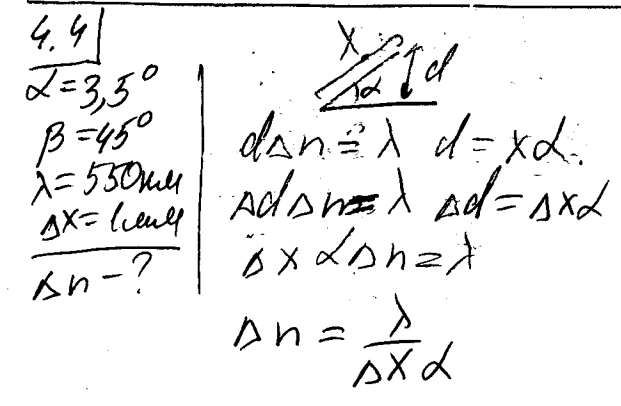 4.4
α=3,5°
β=45°
λ=550нм
Δx=1мм
Δn-?
x
α
d
dΔn=λ d=xα.
ΔdΔn=λ Δd=Δxα
ΔxαΔn=λ
Δn = λ/Δxα